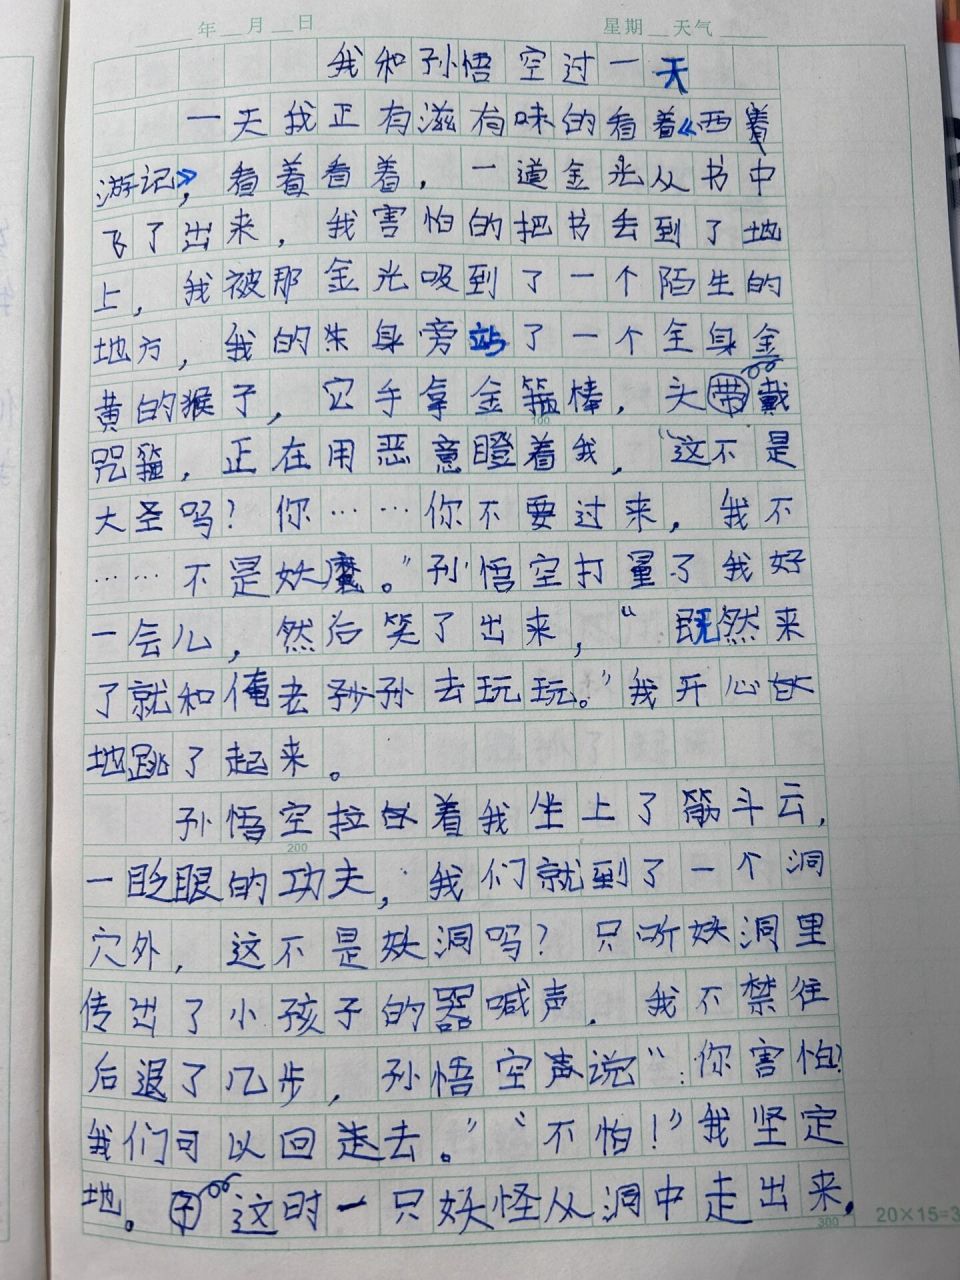 年 月 日 星期 天气
我和孙悟空过一天
一天我正有滋有味的看着《西
游记》，看着看着，一道金光从书中
飞了出来，我害怕的把书丢到了地
上，我被那金光吸到了一个陌生的
地方，我的身旁站了一个全身金
黄的猴子，它手拿金箍棒，头戴
100
咒箍，正在用恶意瞪着我，“这不是
大圣吗？你……你不要过来，我不
……不是妖魔。”孙悟空打量了我好
一会儿，然后笑了出来，“既然来
了就和俺老孙去玩玩。”我开心
地跳了起来。
孙悟空拉着我坐上了筋斗云，
200
一眨眼的功夫，我们就到了一个洞
穴外，这不是妖洞吗？只听妖洞里
传出了小孩子的哭喊声，我不禁往
后退了几步，孙悟空声说“：你害怕？
我们可以回去。”“不怕！”我坚定
地。这时一只妖怪从洞中走出来，
300
20×15=3